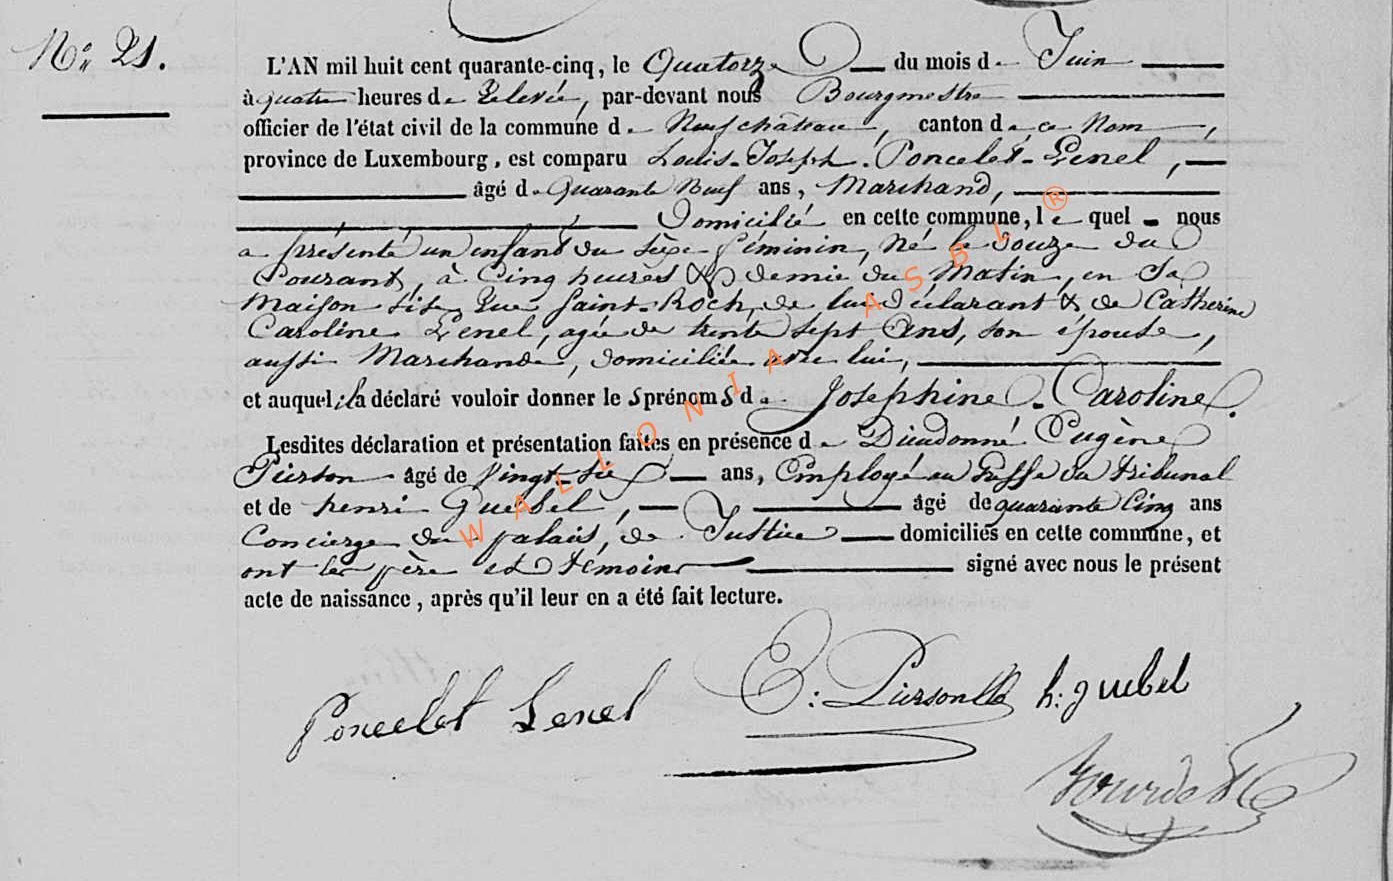 Nr 21.
L'AN mil huit cent quarante-cinq, le Quatorze du mois de Juin
à quatre heures de Relevée, par-devant nous Bourgmestre
officier de l'état civil de la commune de Neufchâteau, canton de ce Nom,
province de Luxembourg, est comparu Louis-Joseph Poncelet-Lenel,
âgé de Quarante Neuf ans, Marchand,
Domicilié en cette commune, lequel nous
a présenté un enfant du sèxe féminin, né le douze du
Courant, à Cinq heures & demie du Matin, en Sa
Maison sise Rue Saint-Roch, de lui déclarant & de Catherine
Caroline Lenel, agée de trente sept Ans, son épouse,
aussi Marchande, domiciliée avec lui,
et auquel il a déclaré vouloir donner les prénoms de Josephine-Caroline.
Lesdites déclaration et présentation faites en présence de Dieudonné Eugène
Pierson âgé de Vingt-six ans, Employé au Greffe du tribunal
et de henri Guebel, âgé de quarante Cinq ans
Concierge du palais, de Justice domiciliés en cette commune, et
ont les père et témoins signé avec nous le présent
acte de naissance, après qu'il leur en a été fait lecture.
Poncelet Lenel E: Pierson h: guebel
WALLONIA ASBL ®